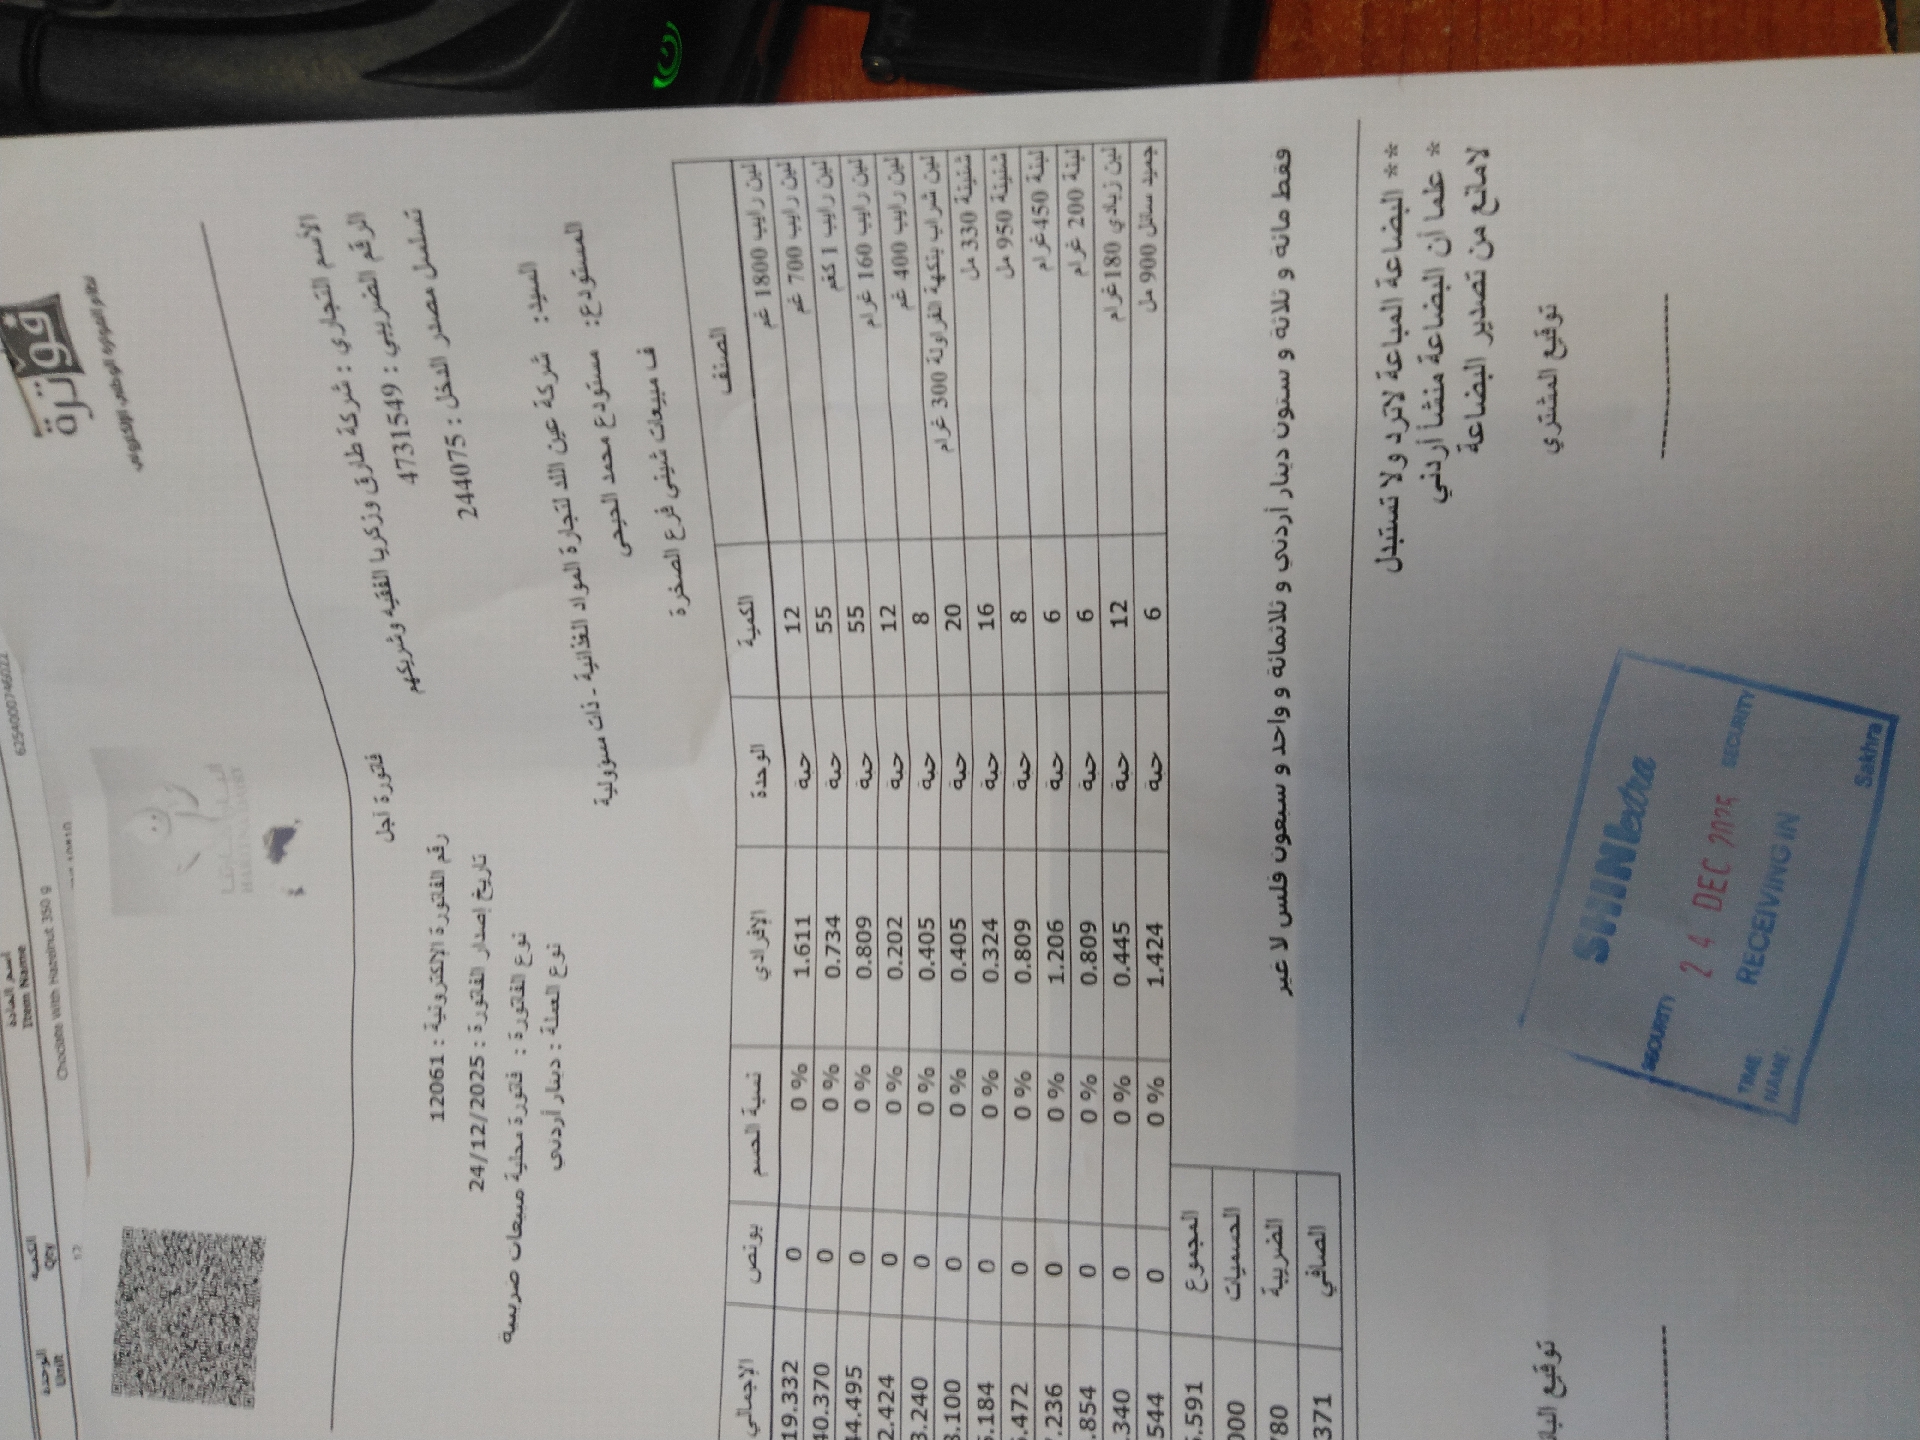 اسم المادة
Item Name
الكمية
Qty
الوحدة
Unit
6254000746022
Choclate With Hazelnut 350 g
12
فوترة
نظام الفوترة الوطني الإلكتروني
فاتورة آجل
الأسم التجاري : شركة طارق وزكريا الفقيه وشريكهم
الرقم الضريبي : 4731549
تسلسل مصدر الدخل : 244075
رقم الفاتورة الإلكترونية : 12061
تاريخ إصدار الفاتورة : 24/12/2025
نوع الفاتورة : فاتورة محلية مبيعات ضريبية
نوع العملة : دينار أردني
السيد: شركة عين اللد لتجارة المواد الغذائية - ذات مسؤولية
المستودع: مستودع محمد الحيحي
ف مبيعات شيني فرع الصخرة
الصنف الكمية الوحدة الإفرادي نسبة الحسم بونص الإجمالي
لبن رايب 1800 غم 12 حبة 1.611 0 % 0 19.332
لبن رايب 700 غم 55 حبة 0.734 0 % 0 40.370
لبن رايب 1 كغم 55 حبة 0.809 0 % 0 44.495
لبن رايب 160 غرام 12 حبة 0.202 0 % 0 2.424
لبن رايب 400 غم 8 حبة 0.405 0 % 0 3.240
لبن شراب بنكهة الفراولة 300 غرام 20 حبة 0.405 0 % 0 8.100
شنينة 330 مل 16 حبة 0.324 0 % 0 5.184
شنينة 950 مل 8 حبة 0.809 0 % 0 .472
لبنة 450غرام 6 حبة 1.206 0 % 0 .236
لبنة 200 غرام 6 حبة 0.809 0 % 0 .854
لبن زبادي 180غرام 12 حبة 0.445 0 % 0 .340
جميد سائل 900 مل 6 حبة 1.424 0 % 0 544
المجموع .591
الحسميات 000
الضريبة 780
الصافي 371
فقط مائة و ثلاثة و ستون دينار أردني و ثلاثمائة و واحد و سبعون فلس لا غير
** البضاعة المباعة لاترد ولا تستبدل
* علما أن البضاعة منشأ أردني
لامانع من تصدير البضاعة
توقيع المشتري
توقيع البا
SHINIextra
SECURITY
SECURITY
24 DEC 2025
RECEIVING IN
TIME
NAME:
Sakhra